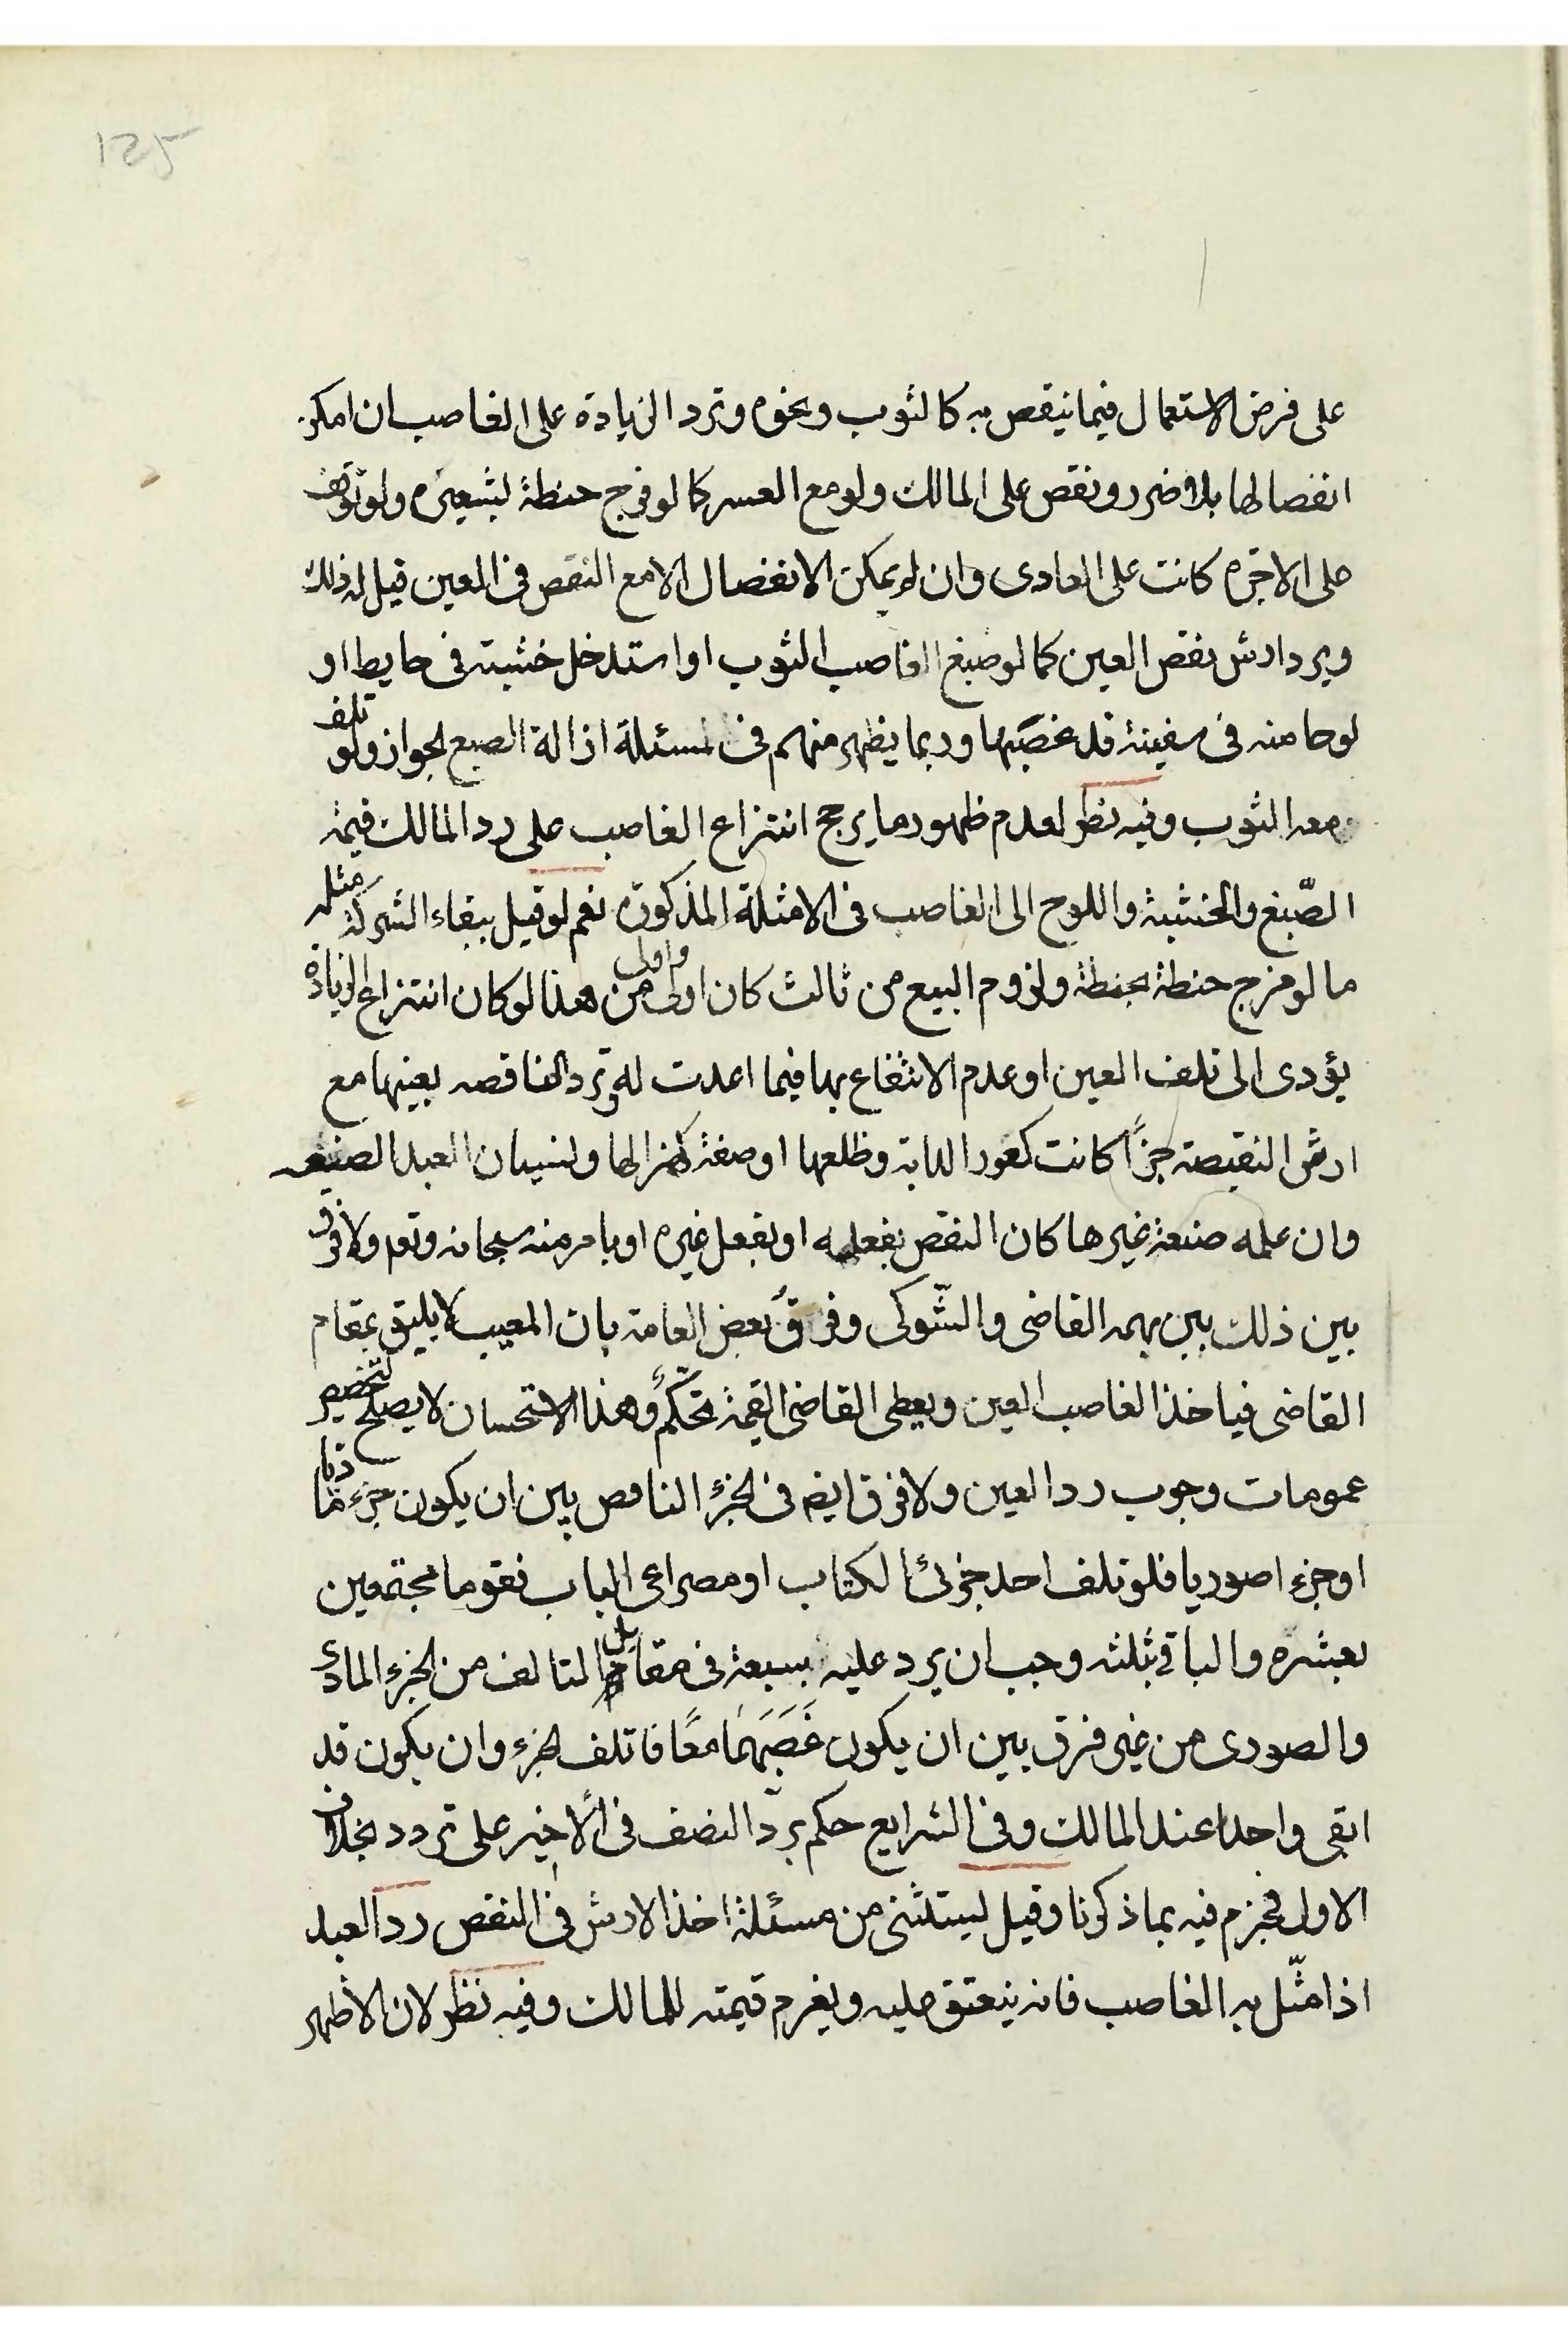 125
على فرض الاستعمال فيما ينقص به كالثوب ونحوه وترد الزيادة على الغاصب ان امكن
انفصالها بلا ضرر ونقص على المالك ولو مع العسر كما لو مزج حنطة بشعيره ولو توقف
على الاجره كانت على العادى وان لم يمكن الانفصال الا مع النقص فى العين قيل له ذلك
ويرد ارش نقص العين كما لو صبغ الغاصب الثوب او استدخل خشبته فى حايط او
لوحا منه فى سفينة قد غصبها وربما يظهر منهم فى مسئلة ازالة الصبغ الجواز ولو تلف
معه الثوب وفيه نظر لعدم ظهور ما يرجح انتزاع الغاصب على رد المالك قيمة
الصّبغ والخشبة واللوح الى الغاصب فى الامثلة المذكوره نعم لو قيل ببقاء الشركة مثله
ما لو مزج حنطة بحنطة ولزوم البيع من ثالث كان اولى واولى من هذا لو كان انتزاع الزيادة
يؤدى الى تلف العين او عدم الانتفاع بها فيما اعدت له وترد الناقصه بعينها مع
ارش النقيصة جزأً كانت كعور الدابة وظلعها او صفة كهزالها ولنسيان العبد الصنعه
وان علمه صنعة غيرها كان النقص بفعله او بفعل غيره او بامر منه سبحانه وتعم ولا فرق
بين ذلك بين بهمه القاضى والشّوكى وفرقُ بعض العامة بان المعيب لا يليق بمقام
القاضى فياخذ الغاصب العين ويعطى القاضى القيمة تحكّمٌ وهذا الاستحسان لا يصلح لتخصيص
عمومات وجوب رد العين ولا فرق ايضم فى الجزء الناقص بين ان يكون جزء ماديا
او جزء اصوريا فلو تلف احد جزئى الكتاب او مصراعى الباب فقوما مجتمعين
بعشره والباقى بثلثه وجب ان يرد عليه بسبعة فى مقابل التالف من الجزء المادى
والصورى من غير فرق بين ان يكون غَصَبَهُمَا معًا فاتلف الجزء وان يكون قد
ابقى واحدا عند المالك وفى الشرايع حكم بردّ النصف فى الأخير على تردد بخلاف
الاول فجزم فيه بما ذكرنا وقيل يستثنى من مسئلة اخذ الارش فى النقص رد العبد
اذا مثّل به الغاصب فانه ينعتق عليه ويغرم قيمته للمالك وفيه نظر لان الاظهر